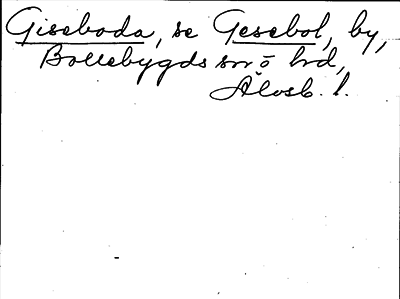 Giseboda, se Gesebol, by,
Bollebygds sn o hd,
Älvsb. l.